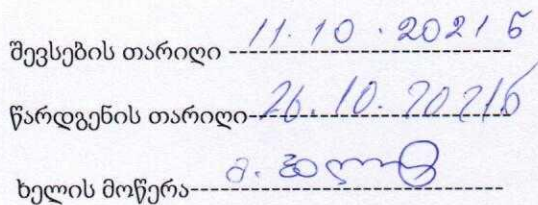 შევსების თარიღი ------11.10.2021წ------
წარდგენის თარიღი--26.10.2021წ----
ხელის მოწერა----